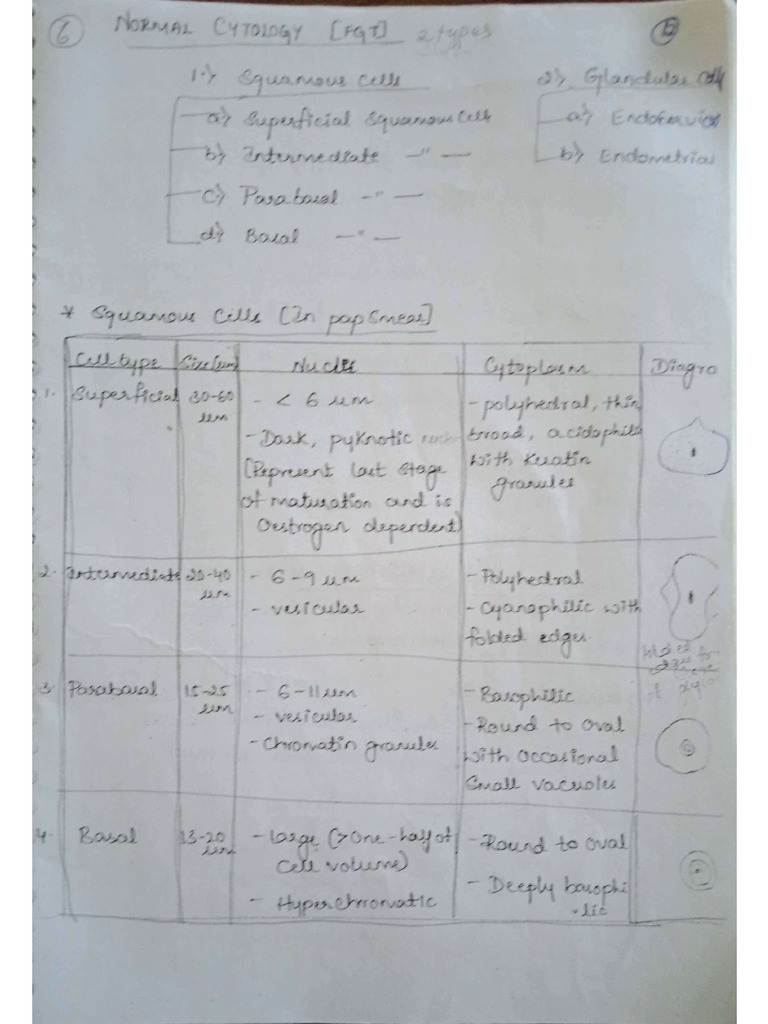 6 NORMAL CYTOLOGY [FGT] 2 types
1.) Squamous cells
a) Superficial Squamous Cell
b) Intermediate -"-
c) Parabasal -"-
d) Basal -"-
2) Glandular
a) Endocervical
b) Endometrial
* Squamous Cells [In pap Smear]
Cell type Size (um) Nuclei Cytoplasm Diagra
1. Superficial
30-60
um
- < 6 um
- Dark, pyknotic
(Represent last stage
of maturation and is
Oestrogen dependent)
- polyhedral, thin,
broad, acidophilic
with Keratin
granules
2. Intermediate
20-40
um
- 6-9 um
- vesicular
- Polyhedral
- Cyanophilic with
folded edges.
folded
3. Parabasal
15-25
um
- 6-11 um
- vesicular
- Chromatin granules
- Basophilic
- Round to Oval
with occasional
Small vacuoles
4. Basal
13-20
um
- Large (> One-half of
cell volume)
- Hyperchromatic
- Round to oval
- Deeply basophi
lic